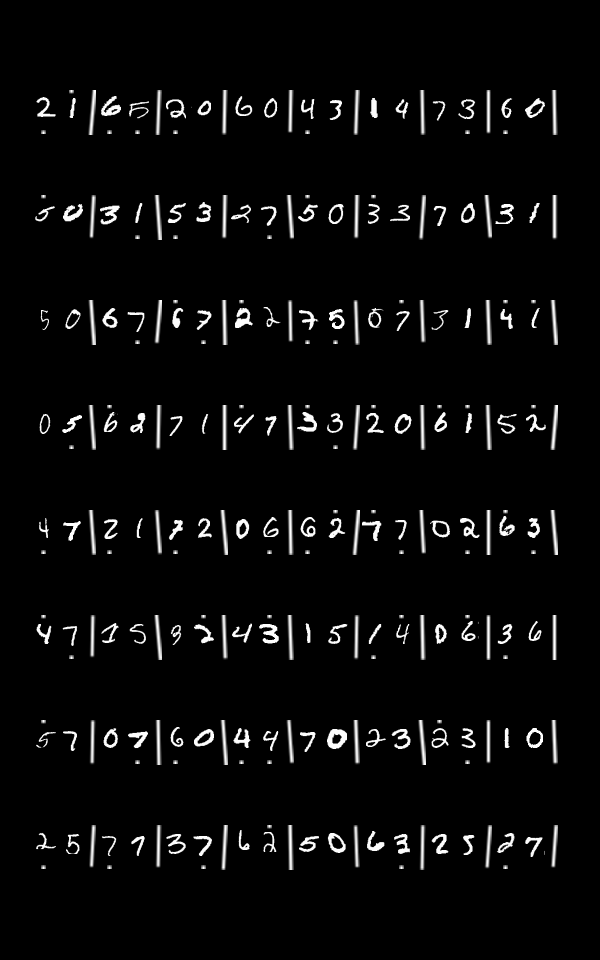 2 1 | 6 5 | 2 0 | 6 0 | 4 3 | 1 4 | 7 3 | 6 0 |
5 0 | 3 1 | 5 3 | 2 7 | 5 0 | 3 3 | 7 0 | 3 1 |
5 0 | 6 7 | 6 7 | 2 2 | 7 5 | 0 7 | 3 1 | 4 1 |
0 5 | 6 2 | 7 1 | 4 7 | 3 3 | 2 0 | 6 1 | 5 2 |
4 7 | 2 1 | 7 2 | 0 6 | 6 2 | 7 7 | 0 2 | 6 3 |
4 7 | 1 5 | 3 2 | 4 3 | 1 5 | 1 4 | 0 6 | 3 6 |
5 7 | 0 7 | 6 0 | 4 4 | 7 0 | 2 3 | 2 3 | 1 0 |
2 5 | 7 7 | 3 7 | 6 2 | 5 0 | 6 3 | 2 5 | 2 7 |